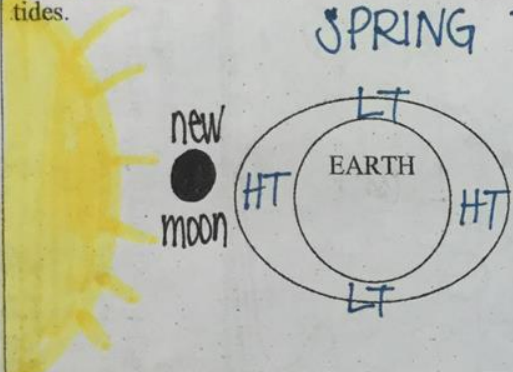 tides.
SPRING
new
moon
LT
EARTH
HT
HT
LT